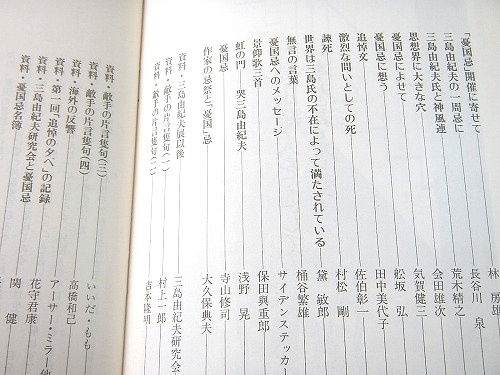 「憂国忌」開催に寄せて 林 房雄
三島由紀夫の一周忌に 長谷川 泉
三島由紀夫氏と神風連 荒木精之
思想界に大きな穴 会田雄次
憂国忌によせて 気賀健三
憂国忌に想う 舩坂 弘
追悼文 田中美代子
激烈な問いとしての死 佐伯彰一
諫死 村松 剛
世界は三島氏の不在によって満たされている 黛 敏郎
無言の言葉 桶谷繁雄
憂国忌へのメッセージ サイデンステッカー
景仰歌三首 保田與重郎
虹の門 哭三島由紀夫 浅野 晃
憂国忌 寺山修司
作家の忌祭と「憂国」忌 大久保典夫
資料・三島由紀夫展以後 三島由紀夫研究会
資料・敵手の片言集句(一) 村上一郎
資料・敵手の片言集句(二) 吉本隆明
資料・敵手の片言集句(三) いいだ・もも
資料・敵手の片言集句(四) 高橋和巳
資料・海外の反響 アーサー・ミラー他
資料・第一回「追悼の夕べ」の記録 花守君康
資料・三島由紀夫研究会と憂国忌 関 健
資料・憂国忌名簿